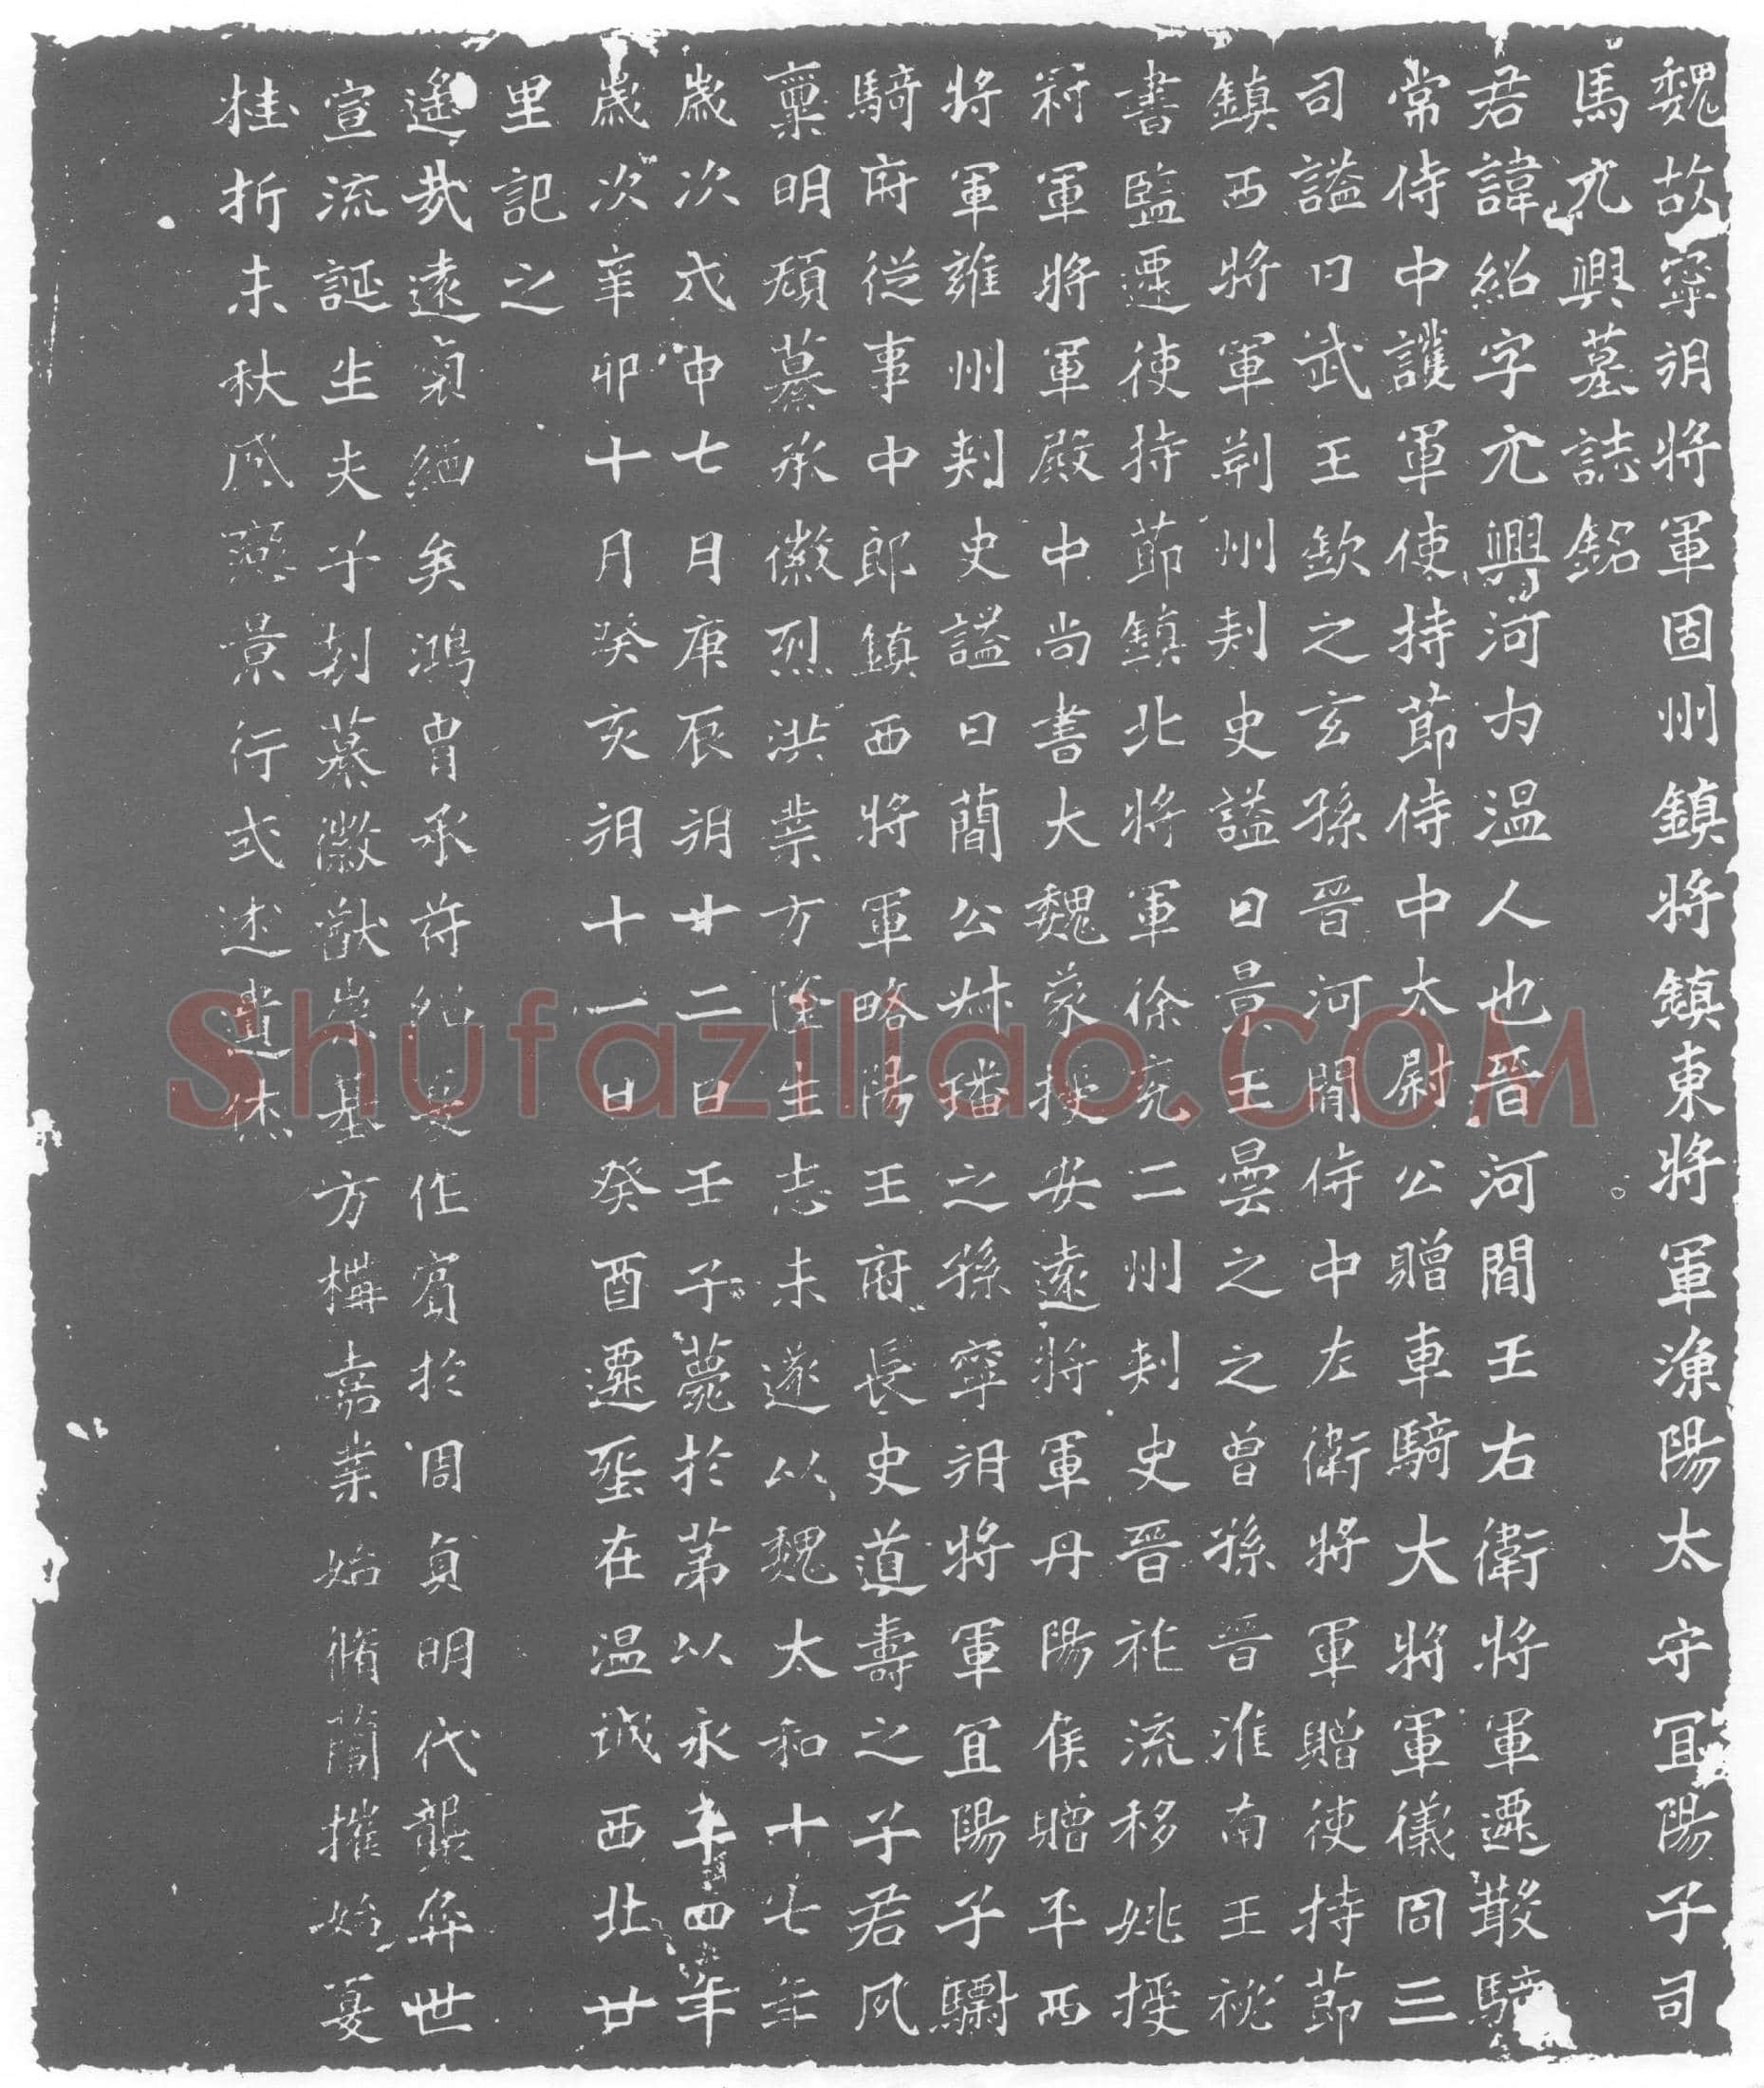 魏故寧朔將軍固州鎮將鎮東將軍漁陽太守宜陽子司
馬元興墓誌銘
君諱紹字元興河內温人也晉河間王右衛將軍遷散騎
常侍中護軍使持節侍中太尉公贈車騎大將軍儀同三
司謚曰武王欽之玄孫晉河間侍中左衛將軍贈使持節
鎮西將軍荊州刾史謚曰景王曇之之曾孫晉淮南王秘
書監遷使持節鎮北將軍徐兖二州刾史晉祚流移姚授
冠軍將軍殿中尚書大魏蒙授安遠將軍丹陽侯贈平西
將軍雍州刾史謚曰蘭公叔璠之孫寧朔將軍宜陽子驃
騎府從事中郎鎮西將軍略陽王府長史道壽之子君夙
稟明頎慕承徽烈洪業方隆生志未遂以魏太和十七年
歲次戊申七月庚辰朔廿二日壬子薨於第以永平四年
歲次辛卯十月癸亥朔十一日癸酉遷塋在温城西北廿
里記之
遙哉遠裔綿矣鴻胄承苻紹夏作賓於周貞明代襲弈世
宣流誕生夫子剋慕徽猷崇基方構嘉業始脩蘭摧始夏
桂折未秋感戀景行式述遺休
Shufaziliao.COM